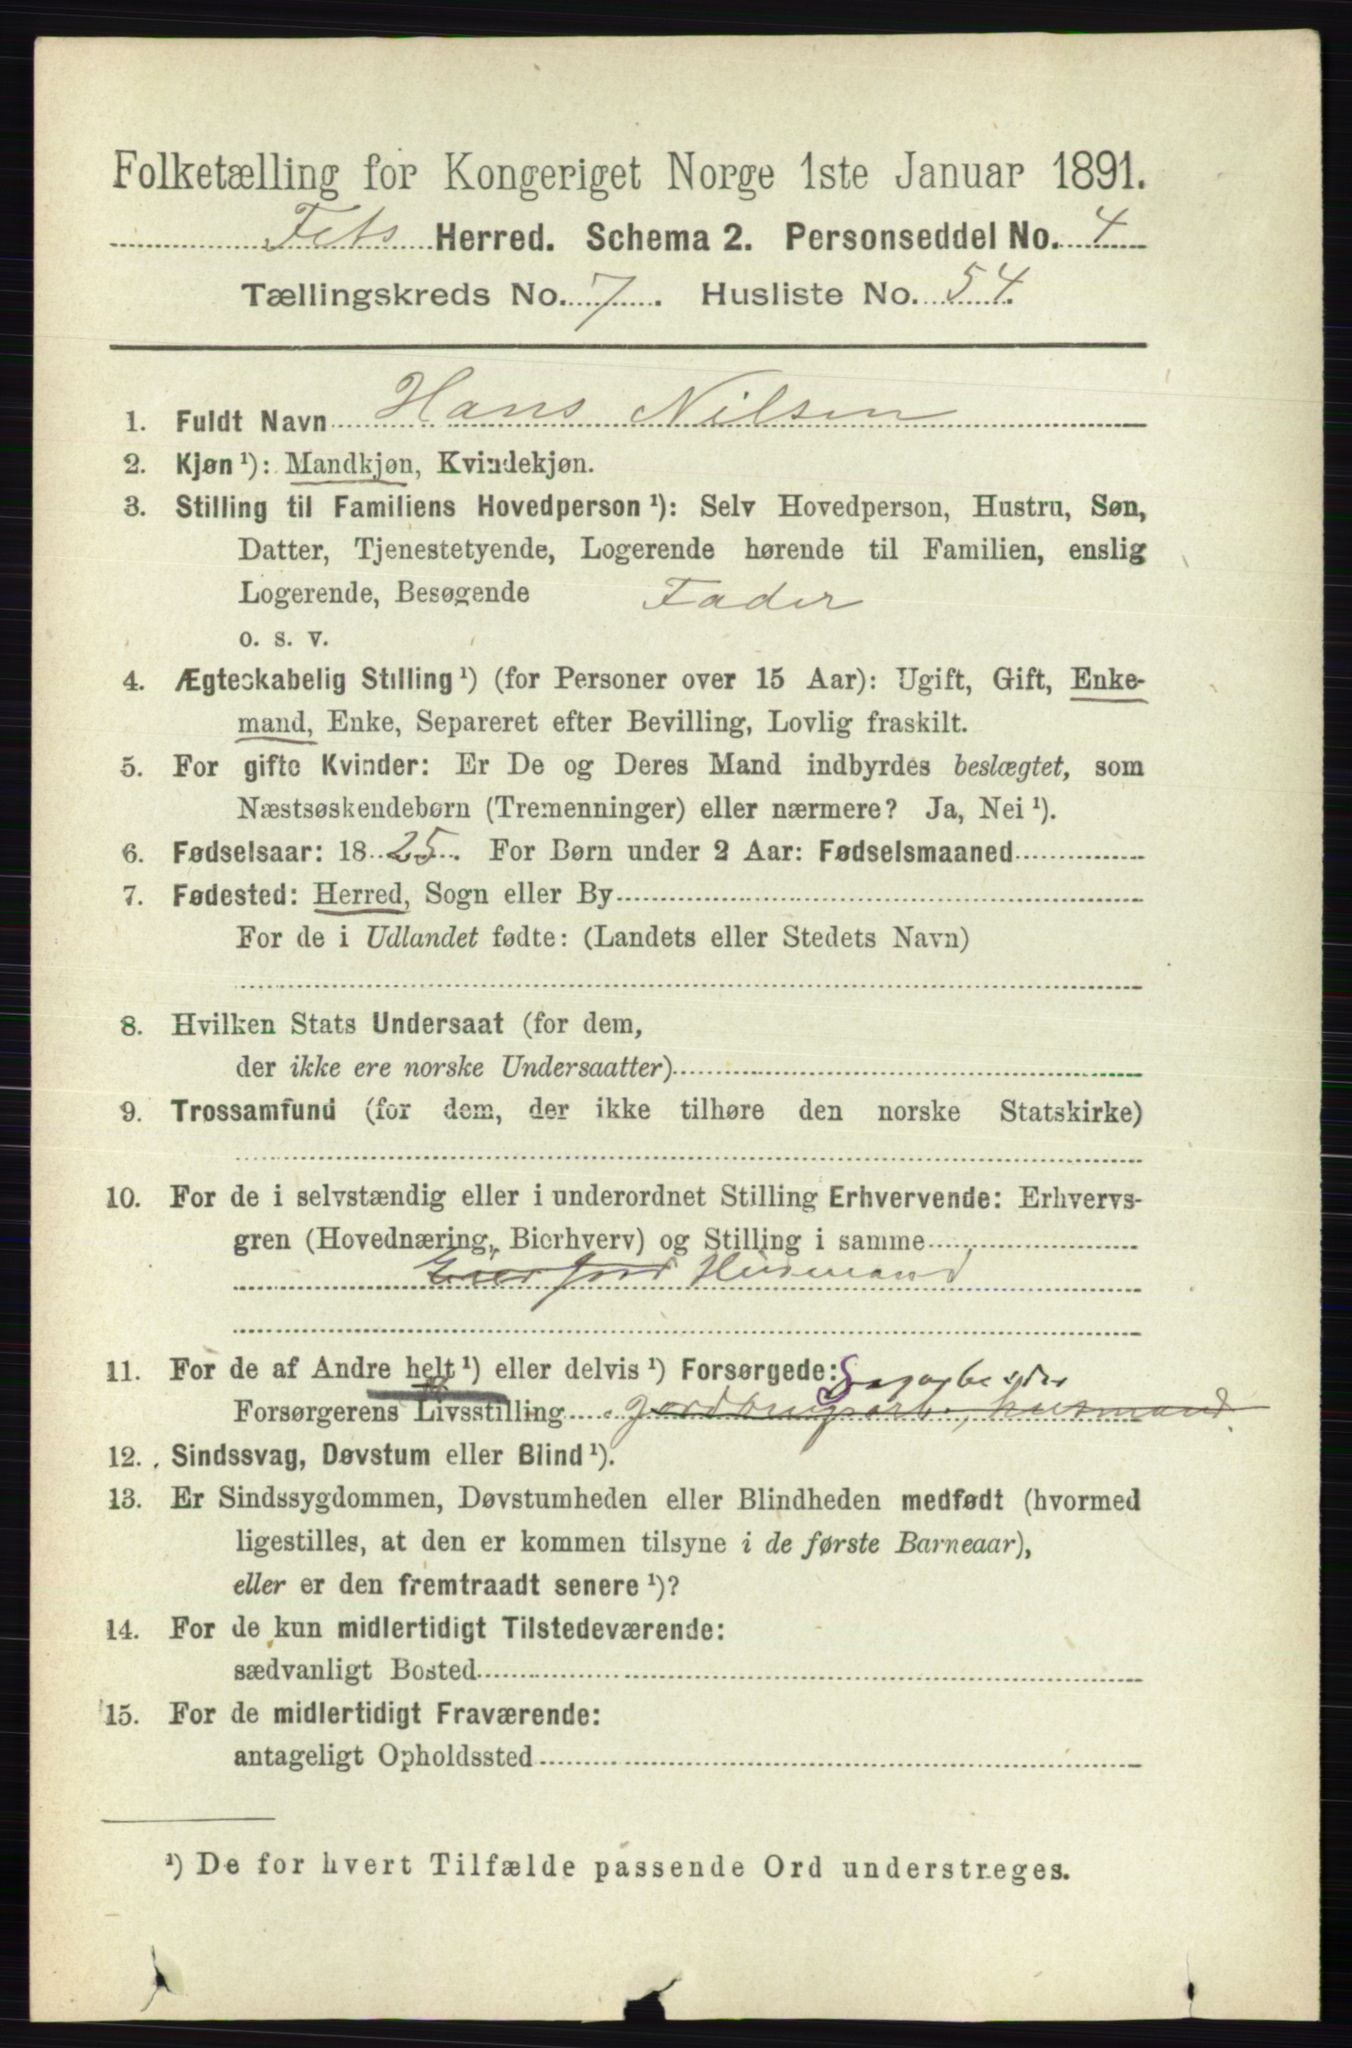 Folketælling for Kongeriget Norge 1ste Januar 1891.
Fets Herred. Schema 2. Personseddel No. 4
Tællingskreds No. 7. Husliste No. 54.
1. Fuldt Navn Hans Nilsen
2. Kjøn ¹): Mandkjøn, Kvindekjøn.
3. Stilling til Familiens Hovedperson ¹): Selv Hovedperson, Hustru, Søn,
Datter, Tjenestetyende, Logerende hørende til Familien, enslig
Logerende, Besøgende Fader
o. s. v.
4. Ægteskabelig Stilling ¹) (for Personer over 15 Aar): Ugift, Gift, Enke-
mand, Enke, Separeret efter Bevilling, Lovlig fraskilt.
5. For gifte Kvinder: Er De og Deres Mand indbyrdes beslægtet, som
Næstsøskendebørn (Tremenninger) eller nærmere? Ja, Nei ¹).
6. Fødselsaar: 1825. For Børn under 2 Aar: Fødselsmaaned
7. Fødested: Herred, Sogn eller By
For de i Udlandet fødte: (Landets eller Stedets Navn)
8. Hvilken Stats Undersaat (for dem,
der ikke ere norske Undersaatter)
9. Trossamfund (for dem, der ikke tilhøre den norske Statskirke)
10. For de i selvstændig eller i underordnet Stilling Erhvervende: Erhvervs-
gren (Hovednæring, Bierhverv) og Stilling i samme
Husmand
11. For de af Andre helt ¹) eller delvis ¹) Forsørgede: Sagarbeider
Forsørgerens Livsstilling Jordbrugsarb., husmand.
12. Sindssvag, Døvstum eller Blind ¹).
13. Er Sindssygdommen, Døvstumheden eller Blindheden medfødt (hvormed
ligestilles, at den er kommen tilsyne i de første Barneaar),
eller er den fremtraadt senere ¹)?
14. For de kun midlertidigt Tilstedeværende:
sædvanligt Bosted
15. For de midlertidigt Fraværende:
antageligt Opholdssted
¹) De for hvert Tilfælde passende Ord understreges.